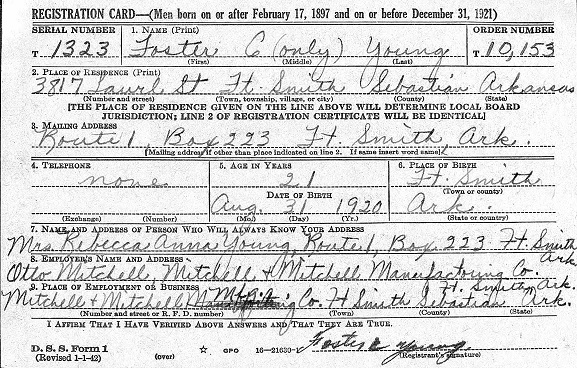 REGISTRATION CARD—(Men born on or after February 17, 1897 and on or before December 31, 1921)
SERIAL NUMBER 1. NAME (Print) ORDER NUMBER
T 1323 Foster C (only) Young T 10,153
(First) (Middle) (Last)
2. PLACE OF RESIDENCE (Print)
3817 Laurel St Ft. Smith Sebastian Arkansas
(Number and street) (Town, township, village, or city) (County) (State)
[THE PLACE OF RESIDENCE GIVEN ON THE LINE ABOVE WILL DETERMINE LOCAL BOARD
JURISDICTION; LINE 2 OF REGISTRATION CERTIFICATE WILL BE IDENTICAL]
3. MAILING ADDRESS
Route 1, Box 223 Ft Smith, Ark.
[Mailing address if other than place indicated on line 2. If same insert word same]
4. TELEPHONE 5. AGE IN YEARS 6. PLACE OF BIRTH
none 21 Ft. Smith
DATE OF BIRTH (Town or county)
Aug. 31 1920 Ark.
(Exchange) (Number) (Mo.) (Day) (Yr.) (State or country)
7. NAME AND ADDRESS OF PERSON WHO WILL ALWAYS KNOW YOUR ADDRESS
Mrs. Rebecca Anna Young, Route 1, Box 223 Ft. Smith
Ark
8. EMPLOYER'S NAME AND ADDRESS
Otto Mitchell, Mitchell & Mitchell Manufactoring Co.
Ft Smith, Ark.
9. PLACE OF EMPLOYMENT OR BUSINESS
Mitchell & Mitchell Mfg. Co. Ft Smith Sebastian Ark.
(Number and street or R. F. D. number) (Town) (County) (State)
I AFFIRM THAT I HAVE VERIFIED ABOVE ANSWERS AND THAT THEY ARE TRUE.
D. S. S. Form 1
(Revised 1-1-42) (over) ☆ GPO 16—21630-1 Foster C Young
(Registrant's signature)